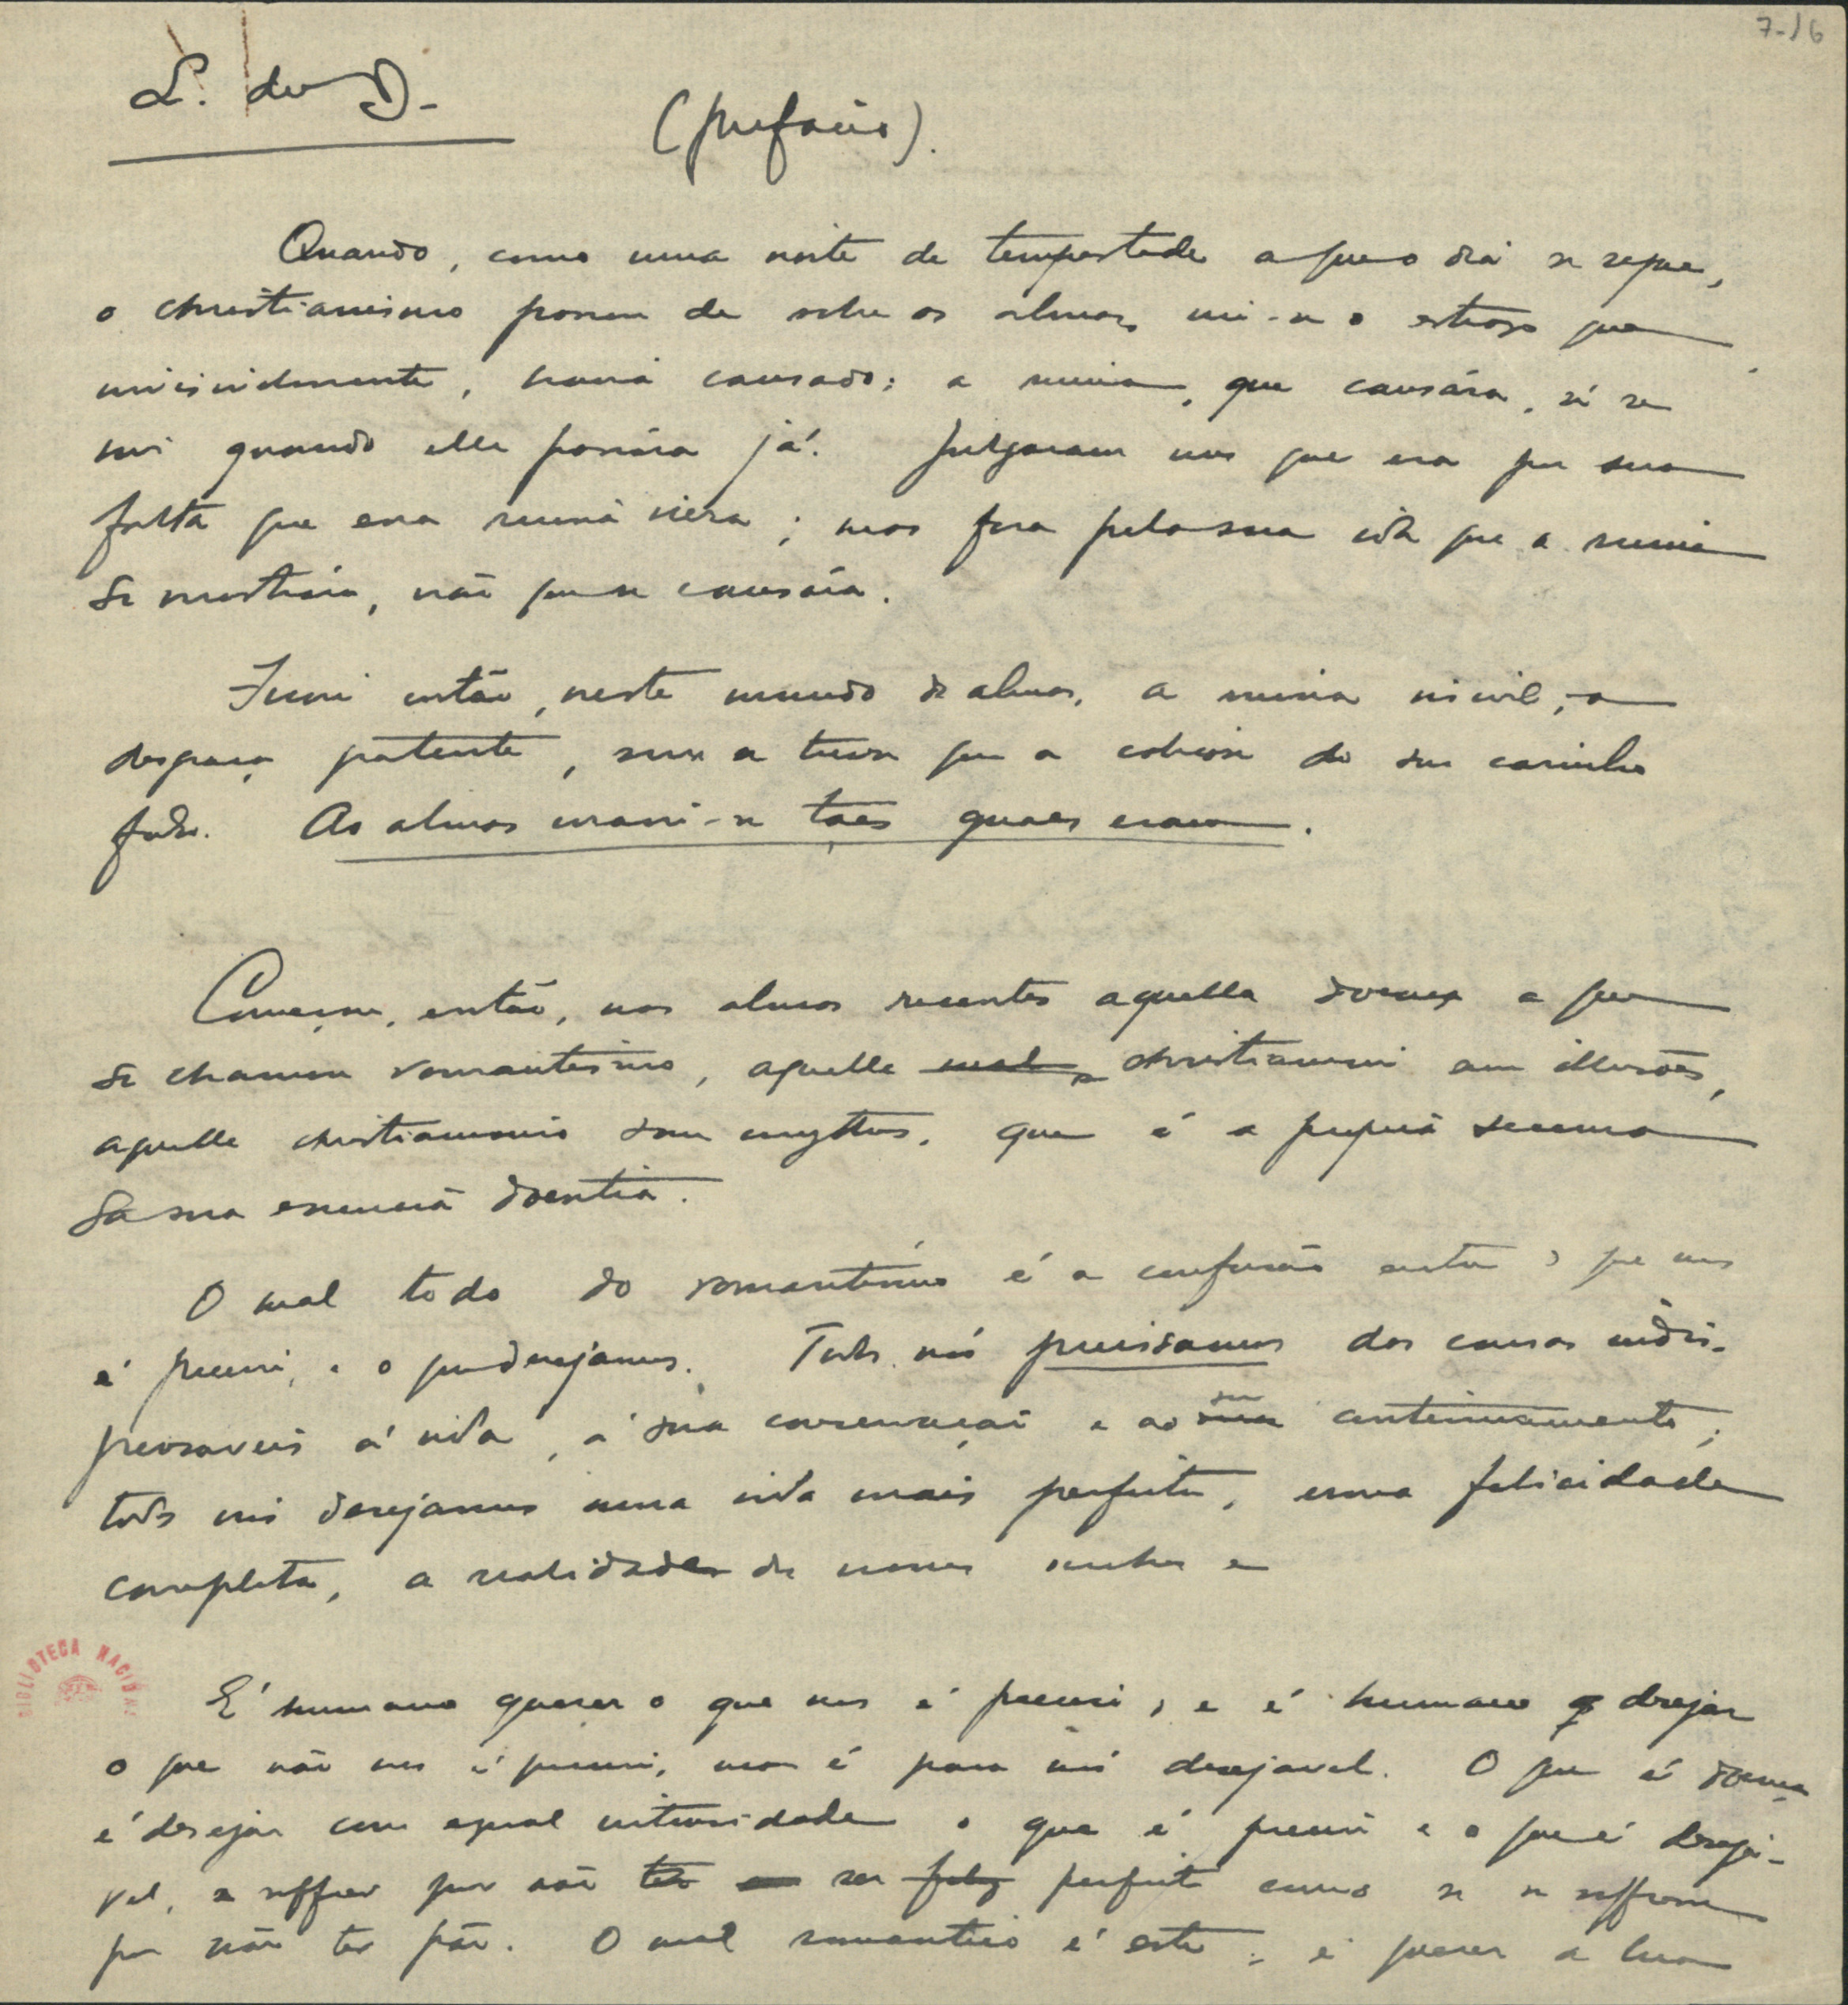 7-16
L. do D.
(prefacio).
Quando, como uma noite de tempestade a que o dia se segue,
o christianismo passou de sobre as almas, viu-se o estrago que,
invisivelmente, havia causado; a ruina, que causára, só se
viu quando elle passára já. Julgaram uns que era por sua
falta que essa ruina viera; mas fora pela sua ida que a ruina
se mostrára, não que se causára.
Ficou então, neste mundo de almas, a ruina visivel, a
desgraça patente, sem a treva que a cobrisse do seu carinho
falso. As almas viram-se taes quaes eram.
Começou, então, nas almas recentes aquella doença a que
se chamou romantismo, aquelle mal, christianismo sem illusões,
aquelle christianismo sem mythos, que é a propria seccura
da sua essencia doentia.
O mal todo do romantismo é a confusão entre o que nos
é preciso e o que desejamos. Todos nós precisamos das cousas indis-
pensaveis á vida, á sua conservação e ao sua seu continuamento;
todos nós desejamos uma vida mais perfeita, uma felicidade
completa, a realidade de nossos sonhos e
E' humano querer o que nos é preciso, e é humano desejar
o que não nos é preciso, mas é para nós desejavel. O que é doença
é desejar com egual intensidade o que é preciso e o que é desejá-
vel, e soffrer por não ter ser feliz perfeito como se se soffresse
por não ter pão. O mal romantico é este: é querer a lua
BIBLIOTECA NACIONAL